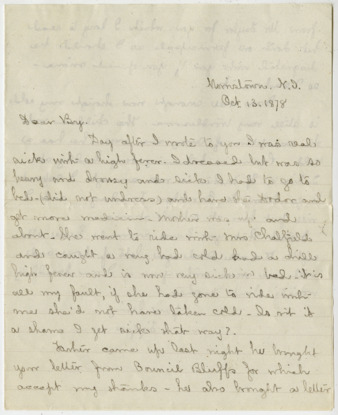 Morristown, N.J.
Oct 13. 1878
Dear Boy.
Day after I wrote to you I was real
sick with a high fever. I dressed but was so
and drowsy and sick I had to go to
bed (did not undress) and have the Doctor and
get more medicine. Mother was up and
about. She went to ride with Mrs Chalfield
and caught a very bad cold had a
high fever and is now very sick in bed. it is
all my fault, if she had gone to ride with
me she'd not have taken cold. Is it
a shame I get sick that way?.
Father came up last night he brought
your letter from Council Bluffs for which
accept my thanks - he also brought a letter